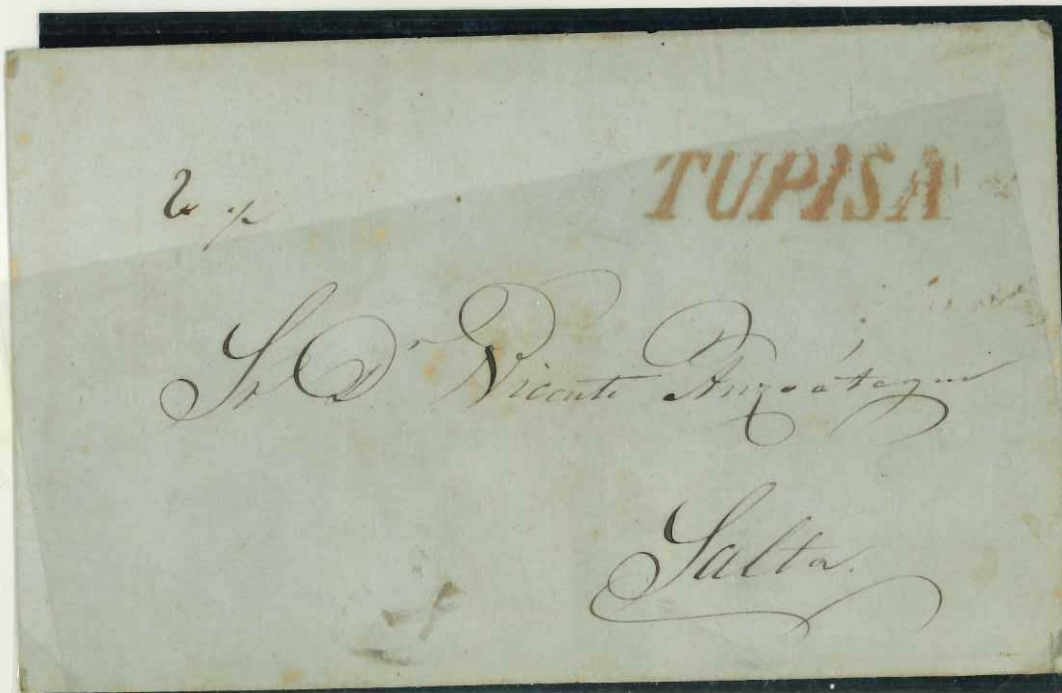 TUPISA
2
Sr Dr Vicente Anzoátegui
Salta.